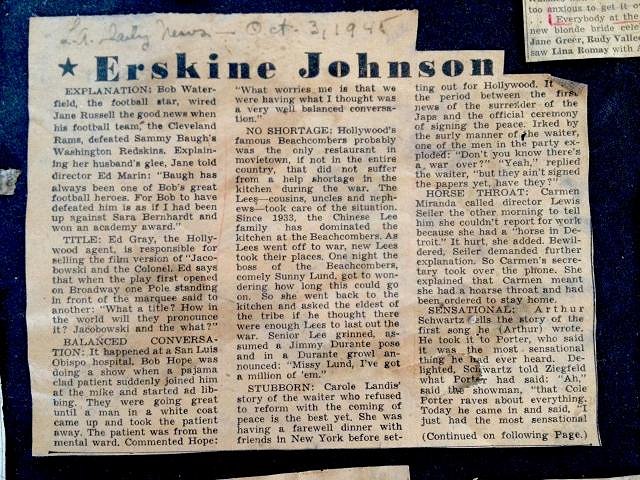 L.A. Daily News — Oct. 3, 1945
★ Erskine Johnson
EXPLANATION: Bob Water-
field, the football star, wired
Jane Russell the good news when
his football team, the Cleveland
Rams, defeated Sammy Baugh's
Washington Redskins. Explain-
ing her husband's glee, Jane told
director Ed Marin: "Baugh has
always been one of Bob's great
football heroes. For Bob to have
defeated him is as if I had been
up against Sara Bernhardt and
won an academy award."
TITLE: Ed Gray, the Holly-
wood agent, is responsible for
selling the film version of "Jaco-
bowski and the Colonel. Ed says
that when the play first opened
on Broadway one Pole standing
in front of the marquee said to
another: "What a title? How in
the world will they pronounce
it? Jacobowski and the what?"
BALANCED CONVERSA-
TION: It happened at a San Luis
Obispo hospital. Bob Hope was
doing a show when a pajama
clad patient suddenly joined him
at the mike and started ad lib-
bing. They were going great
until a man in a white coat
came up and took the patient
away. The patient was from the
mental ward. Commented Hope:
"What worries me is that we
were having what I thought was
a very well balanced conversa-
tion."
NO SHORTAGE: Hollywood's
famous Beachcombers probably
was the only restaurant in
movietown, if not in the entire
country, that did not suffer
from a help shortage in the
kitchen during the war. The
Lees—cousins, uncles and neph-
ews—took care of the situation.
Since 1933, the Chinese Lee
family has dominated the
kitchen at the Beachcombers. As
Lees went off to war, new Lees
took their places. One night the
boss of the Beachcombers,
comely Sunny Lund, got to won-
dering how long this could go
on. So she went back to the
kitchen and asked the eldest of
the tribe if he thought there
were enough Lees to last out the
war. Senior Lee grinned, as-
sumed a Jimmy Durante pose
and in a Durante growl an-
nounced: "Missy Lund, I've got
a million of 'em."
STUBBORN: Carole Landis'
story of the waiter who refused
to reform with the coming of
peace is the best yet. She was
having a farewell dinner with
friends in New York before set-
ting out for Hollywood. It
the period between the first
news of the surrender of the
Japs and the official ceremony
of signing the peace. Irked by
the surly manner of the waiter,
one of the men in the party ex-
ploded: "Don't you know there's
a war over?" "Yeah," replied
the waiter, "but they ain't signed
the papers yet, have they?"
HORSE THROAT: Carmen
Miranda called director Lewis
Seiler the other morning to tell
him she couldn't report for work
because she had a "horse in De-
troit." It hurt, she added. Bewil-
dered, Seiler demanded further
explanation. So Carmen's secre-
tary took over the phone. She
explained that Carmen meant
she had a hoarse throat and had
been ordered to stay home.
SENSATIONAL: Arthur
Schwartz tells the story of the
first song he (Arthur) wrote.
He took it to Porter, who said
it was the most sensational
thing he had ever heard. De-
lighted, Schwartz told Ziegfeld
what Porter had said: "Ah,"
said the showman, "that Cole
Porter raves about everything.
Today he came in and said, "I
just had the most sensational
(Continued on following Page.)
too anxious to get it o
Everybody at the
new blonde bride cele
Jane Greer, Rudy Vallee
saw Lina Romay with J